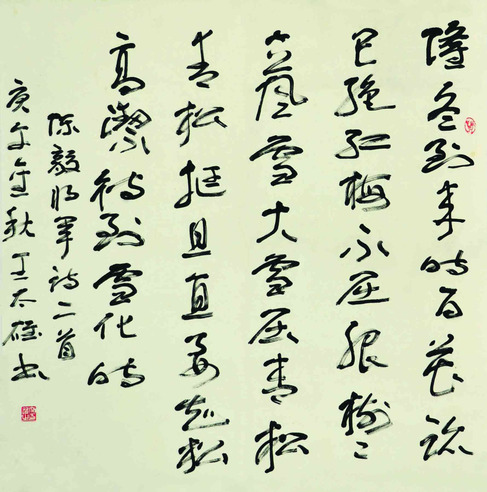 隆冬到来时百花迹
已绝红梅不屈服树〻
立风雪大雪压青松
青松挺且直要知松
高洁待到雪化时
陈毅将军诗二首
庚午金秋王太书